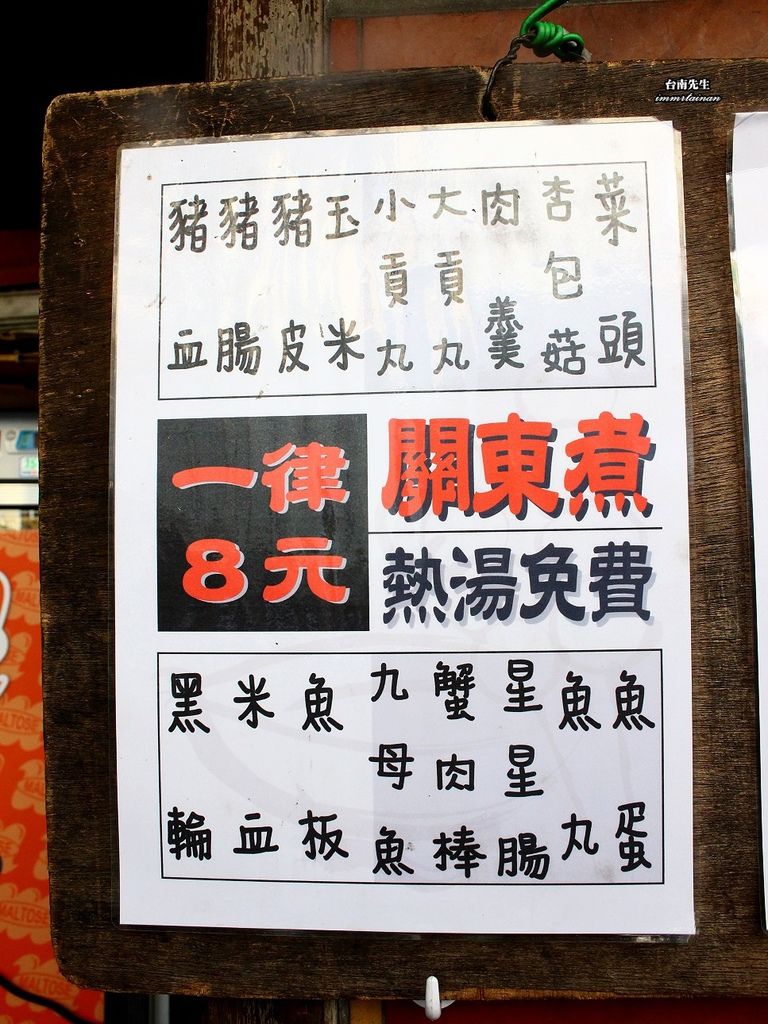 台南先生
immrtainan
菜頭
杏包菇
肉羹
大貢丸
小貢丸
玉米
豬皮
豬腸
豬血
關東煮
熱湯免費
一律
8元
魚蛋
魚丸
星星腸
蟹肉棒
九母魚
魚板
米血
黑輪
MALTOSE
MALTOSE
MALTOSE